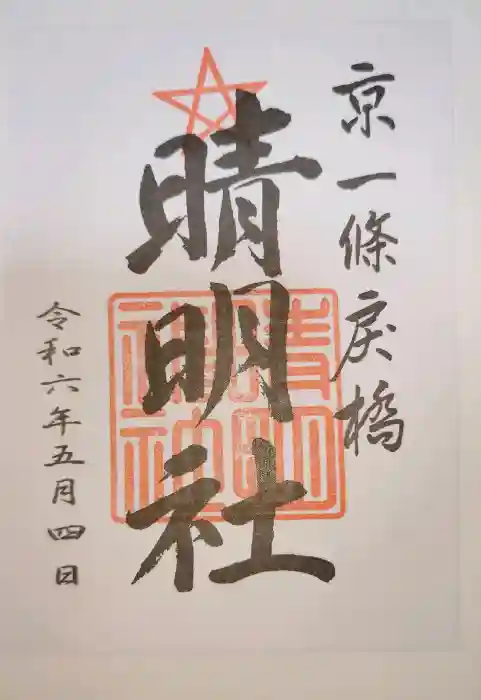 京一條戻橋
晴明社
令和六年五月四日
晴明
神社